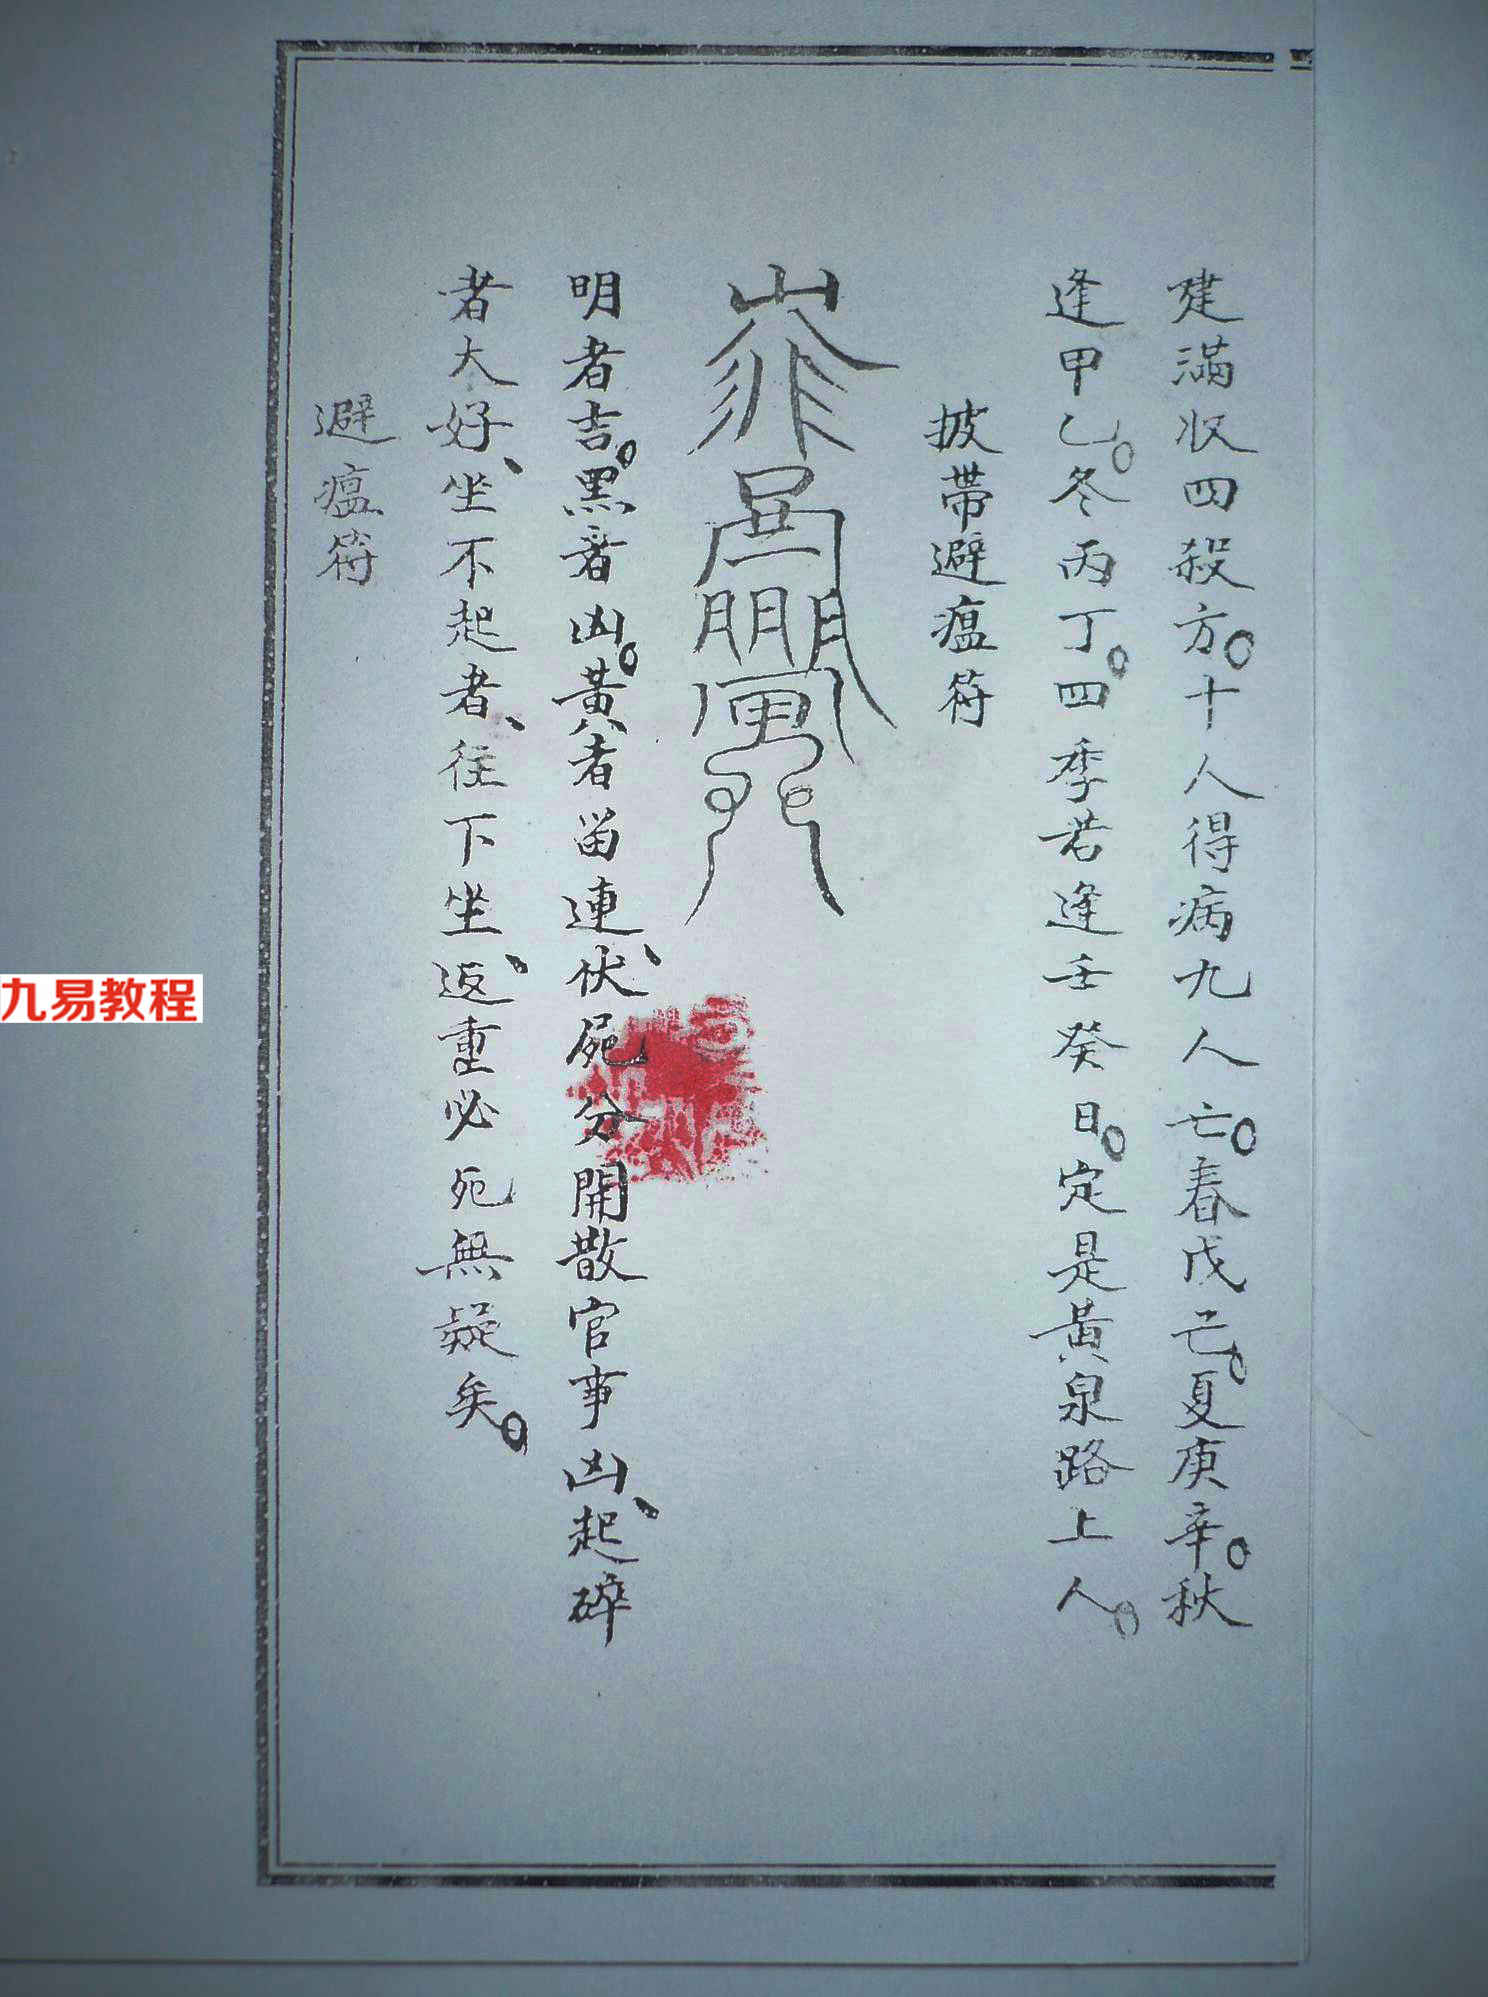 建滿收四殺方。十人得病九人亡。春戊己。夏庚辛。秋
逢甲乙。冬丙丁。四季若逢壬癸日。定是黃泉路上人。
披帶避瘟符
明者吉。黑者凶。黃者留連、伏屍分開散官事凶、起碎
者大好、坐不起者、往下坐、返重必死無疑矣。
避瘟符
九易教程